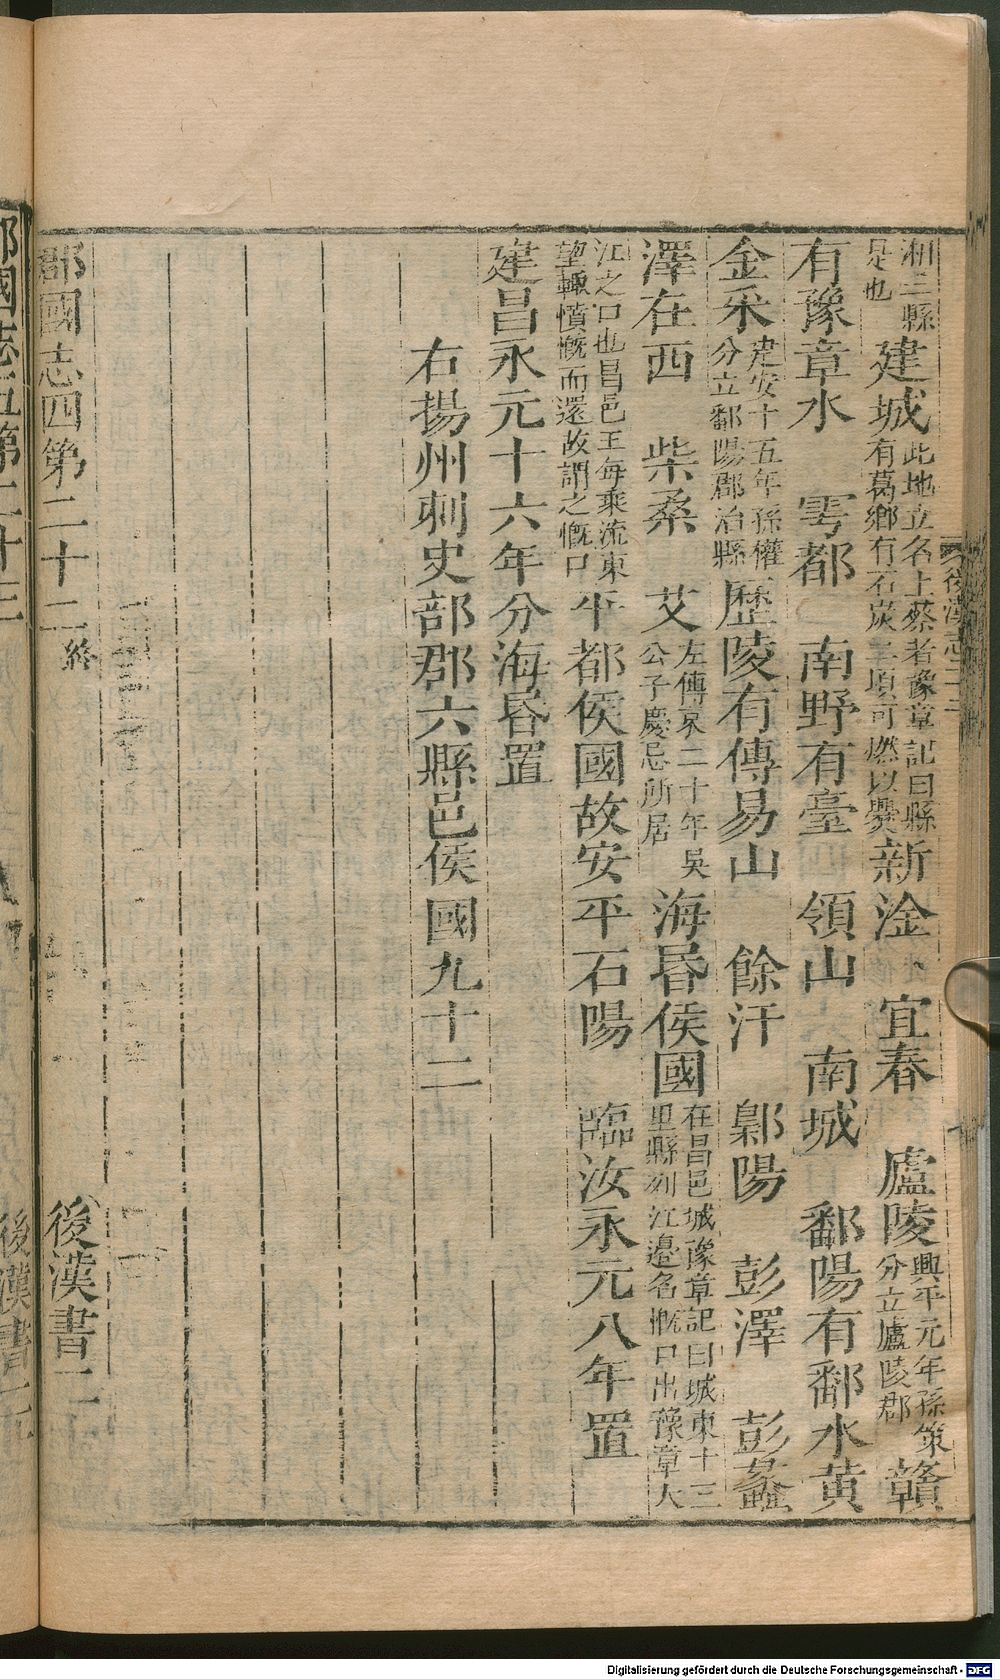 湘二縣是也建城此地立名上蔡者豫章記曰縣有葛鄉有石炭二頃可燃以爨新淦　宜春　廬陵興平元年孫策分立廬陵郡贛
有豫章水　雩都　南野有臺領山　南城　鄱陽有鄱水黃
金采建安十五年孫權分立鄱陽郡治縣歷陵有傅昜山　餘汗　鄡陽　彭澤　彭蠡
澤在西　柴桑　艾左傳哀二十年吳公子慶忌所居海昬侯國在昌邑城豫章記曰城東十三里縣列江邉名慨口出豫章大
江之口也昌邑王每乗流東望輙憤慨而還故謂之慨口平都侯國故安平石陽　臨汝永元八年置
建昌永元十六年分海昬置
右揚州刺史部郡六縣邑侯國九十二
郡國志四第二十二終　後漢書二
郡國志五第二十三　後漢書二
Digitalisierung gefördert durch die Deutsche Forschungsgemeinschaft - DFG